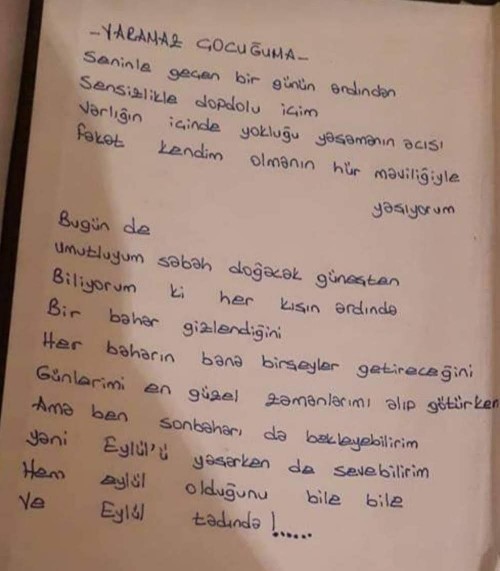 -YARAMAZ ÇOCUĞUMA-
Seninle geçen bir günün ardından
Sensizlikle dopdolu içim
Varlığın içinde yokluğu yaşamanın acısı
fakat kendim olmanın hür maviliğiyle
yaşıyorum
Bugün de
umutluyum sabah doğacak güneşten
Biliyorum ki her kışın ardında
Bir bahar gizlendiğini
Her baharın bana birşeyler getireceğini
Günlerimi en güzel zamanlarımı alıp götürken
Ama ben sonbaharı da bekleyebilirim
yani Eylül'ü yaşarken de sevebilirim
Hem eylül olduğunu bile bile
Ve Eylül tadında !......